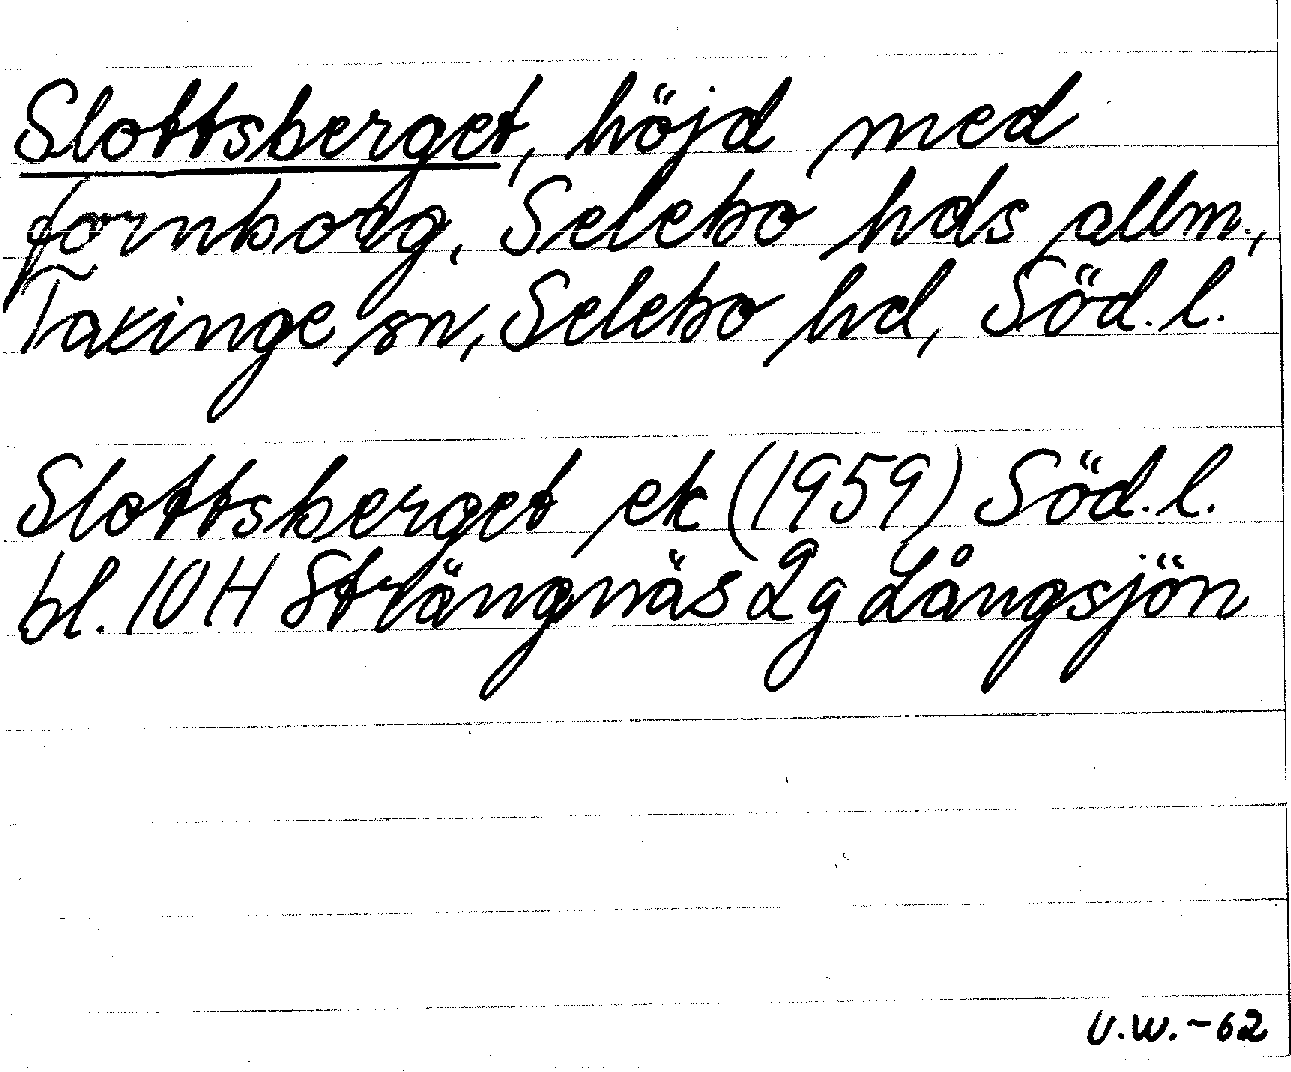 Slottsberget, höjd med
fornborg, Selebo hds allm.,
Taxinge sn, Selebo hd, Söd.l.
Slottsberget ek (1959) Söd.l.
bl. 10 H Strängnäs 2g Långsjön
U.W.-62